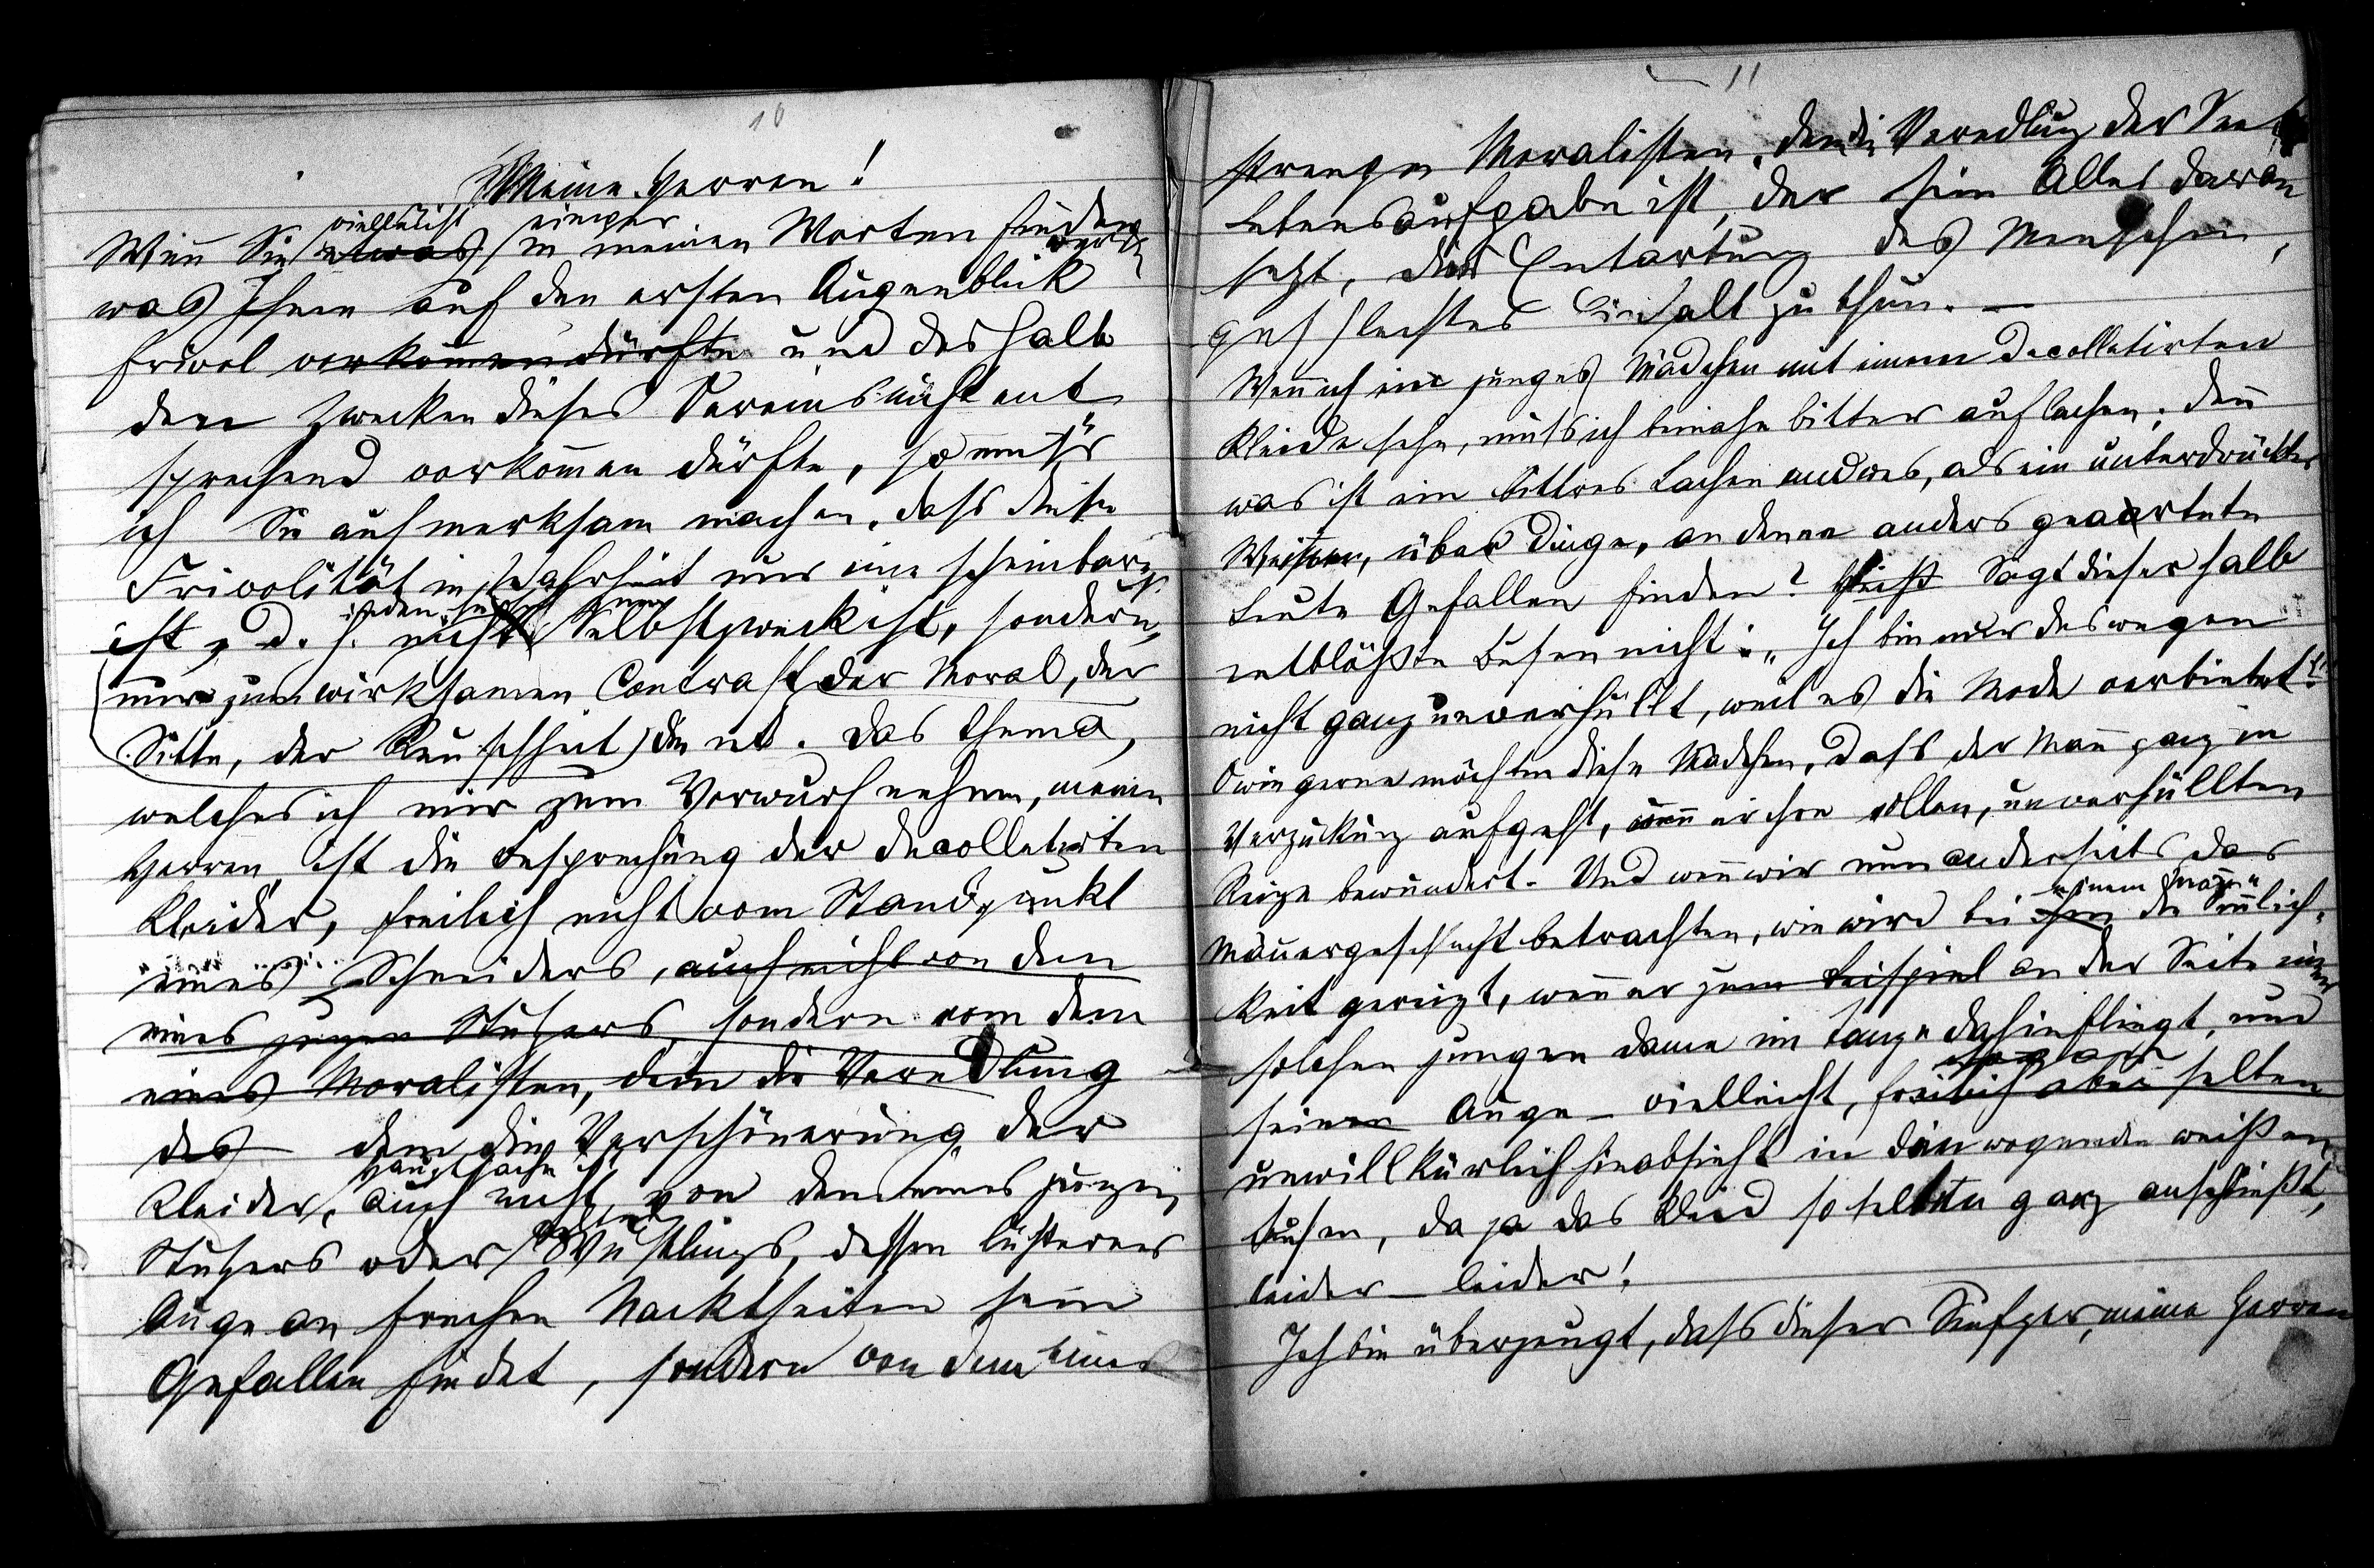 10
Meine Herren!
vielleicht einiges
Wenn Sie etwas in meinen Worten finden
werden
was Ihnen auf den ersten Augenblick
frivol vorkommen dürfte und deshalb
den Zwecken dieses Vereins nicht ent
sprechend vorkommen dürfte, so muß
ich Sie aufmerksam machen, dass diese
Frivolität in Wahrheit nur eine scheinbare
ist, d. h. nicht Selbstzweck ist, sondern
nur zum wirksamen Contrast der Moral, der
Sitte, der Keuschheit dient. Das Thema,
welches ich mir zum Vorwurf nehme, meine
Herren, ist die Besprechung der decolletirten
Kleider, freilich nicht vom Standpunkt
eines Schneiders, auch nicht von dem
eines jungen Stutzers, sondern vom dem
eines Moralisten, dem die Veredlung
des dem die Verschönerung der
Hauptsache ist
Kleider, auch nicht von dem eines jungen
Stutzers oder Wüstlings, dessen lüsternes
Auge an frechen Nacktheiten sein
Gefallen findet, sondern von dem eines
11
strengen Moralisten, dem die Veredlung der
Lebensaufgabe ist, der sein Alles daran
setzt, der Entartung des Menschen
geschlechtes Einhalt zu thun. —
Wenn ich ein junges Mädchen mit einem decolletirten
Kleide sehe, muss ich beinahe bitter auflachen, denn
was ist ein bittres Lachen andres, als ein unterdrücktes
Weinen, über Dinge, an denen anders geartete
Leute Gefallen finden? Sagt dieser halb
entblößte Busen nicht: „Ich bin nur deswegen
nicht ganz unverhüllt, weil es die Mode verbietet!"
O wie gerne möchten diese Mädchen, dass der Mann ganz in
Verzückung aufgeht, wenn er ihre vollen, unverhüllten
Reize bewundert. Und wenn wir nun anderseits das
einem Manne
Männergeschlecht betrachten, wie wird bei ihm die Sinnlich-
keit gereizt, wenn er zum Beispiel an der Seite einer
solchen jungen Dame im Tanze dahinfliegt, und
sogar
seinen Auge — vielleicht, freilich aber selten
unwillkürlich hinabsieht in den wogenden weißen
Busen, da ja das Kleid so selten ganz anschließt,
leider — leider!
Ich bin überzeugt, dass dieser Seufzer, meine Herren